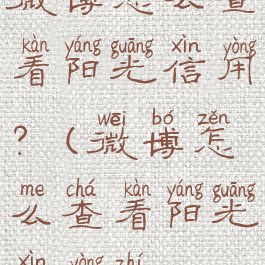 微博怎么查
kàn yáng guāng xìn yòng
看阳光信用
wēi bó zěn
？（微博怎
me chá kàn yáng guāng
么查看阳光
xìn yòng zhí